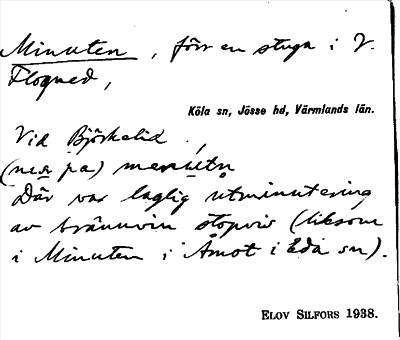 Minuten, förr en stuga i V.
Flogned,
Köla sn, Jösse hd, Värmlands län.
Vid Björkelid.
(ner på) menutn
Där var laglig utminutering
av brännvin stopvis (liksom
i Minuten i Åmot i Eda sn).
ELOV SILFORS 1938.